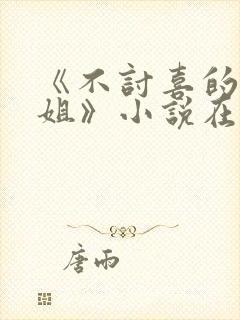 《不討喜的
姐》小説在
唐雨